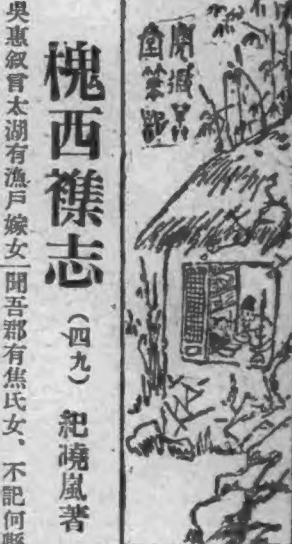 閱微草
堂筆記
槐西襍志（四九） 紀曉嵐著
吳惠叙言太湖有漁戶嫁女—聞吾郡有焦氏女、不記何縣